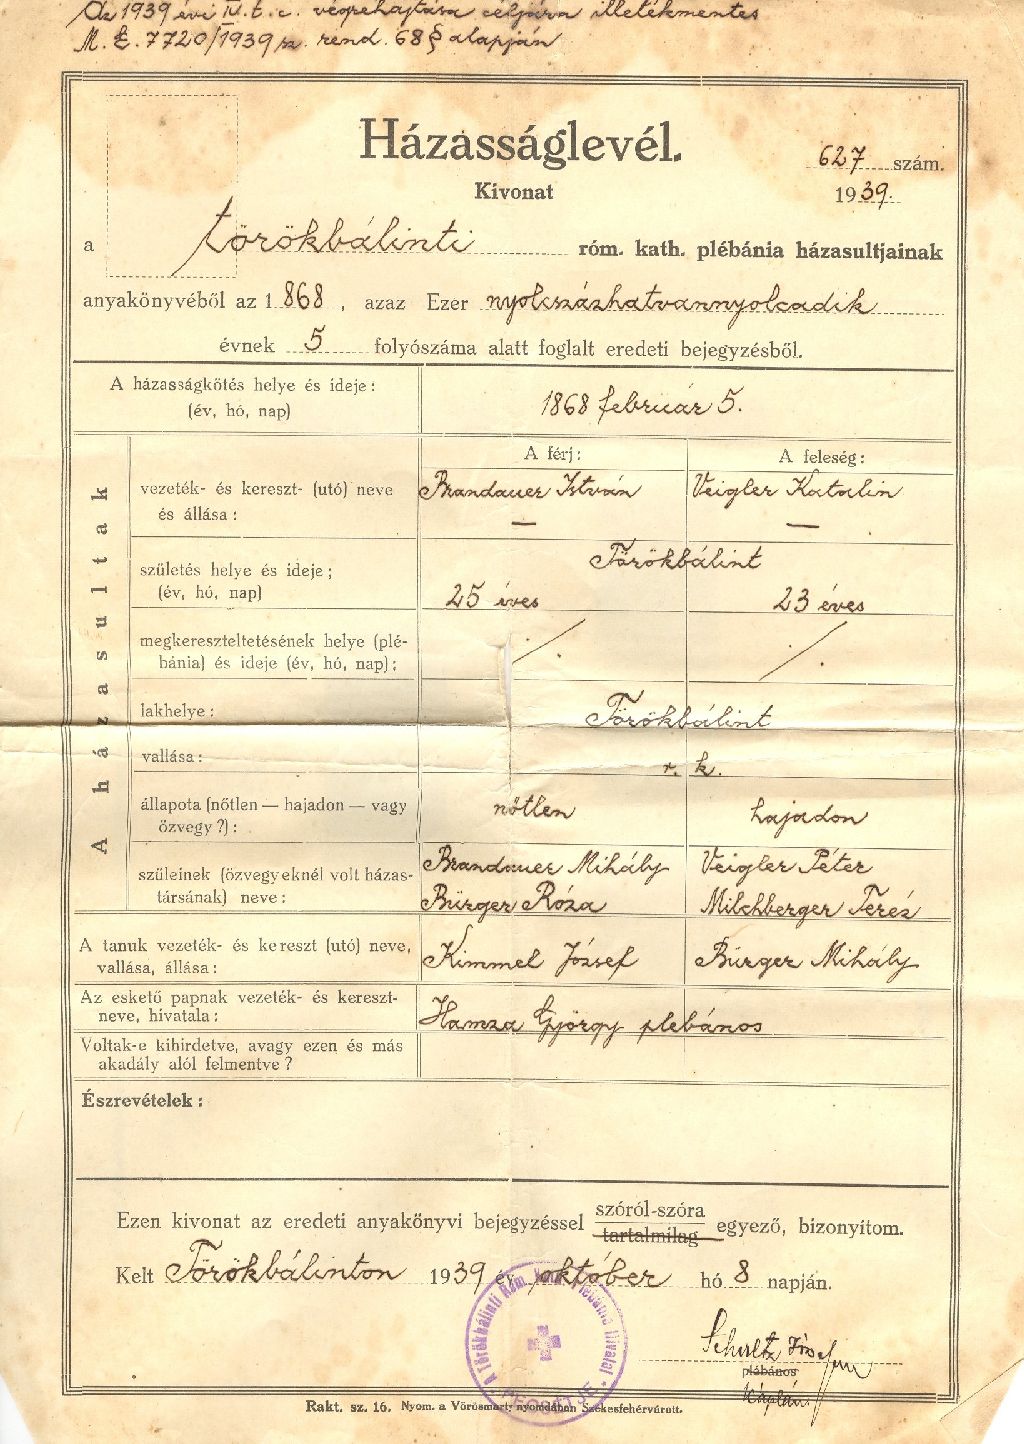 Az 1939 évi IV. t. c. végrehajtása céljára illetékmentes
M. E. 7720/1939 sz. rend. 68 § alapján
Házasságlevél.
627 szám.
Kivonat
1939.
a törökbálinti róm. kath. plébánia házasultjainak
anyakönyvéből az 1.868, azaz Ezer nyolcszázhatvannyolcadik
évnek 5 folyószáma alatt foglalt eredeti bejegyzésből.
A házasságkötés helye és ideje:
(év, hó, nap)
1868 február 5.
A házasultak
A férj: A feleség:
vezeték- és kereszt- (utó) neve
és állása:
Brandauer István Veigler Katalin
— —
születés helye és ideje;
(év, hó, nap)
Törökbálint
25 éves 23 éves
megkereszteltetésének helye (plé-
bánia) és ideje (év, hó, nap):
lakhelye: Törökbálint
vallása: r. k.
állapota (nőtlen — hajadon — vagy
özvegy?):
nőtlen hajadon
szüleinek (özvegyeknél volt házas-
társának) neve:
Brandauer Mihály Veigler Péter
Bürger Róza Milchberger Teréz
A tanuk vezeték- és kereszt (utó) neve,
vallása, állása:
Kimmel József Bürger Mihály
Az eskető papnak vezeték- és kereszt-
neve, hivatala:
Hamza György plebános
Voltak-e kihirdetve, avagy ezen és más
akadály alól felmentve?
Észrevételek:
Ezen kivonat az eredeti anyakönyvi bejegyzéssel szóról-szóra
tartalmilag egyező, bizonyítom.
Kelt Törökbálinton 1939 év október hó 8 napján.
A Törökbálinti Róm. Kath. Plébánia Hivatal
PECSÉTJE
plébános
káplán
Rakt. sz. 16. Nyom. a Vörösmarty nyomdában Székesfehérvárott.